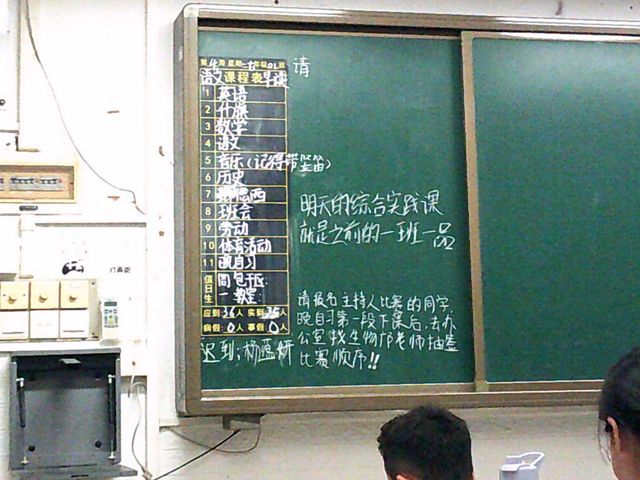 请
语文课程表早读
1 英语
2 竹脉
3 数学
4 语文
5 音乐(记得带竖笛)
6 历史
7
8 班会
9 劳动
10 体育活动
11 晚自习
值日生
应到:36人 实到:36人
病假:0人 事假:0人
迟到:杨蕴妍
明天的综合实践课
就是之前的一班一品
请报名主持人比赛的同学
晚自习第一段下课后,去办
公室找生物邝老师抽签
比赛顺序!!